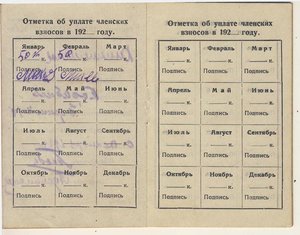 Отметка об уплате членских
взносов в 192 году.
Январь Февраль Март
50 к. 50 к.
Подпись Подпись Подпись
Апрель Май Июнь
к. к. к.
Подпись Подпись Подпись
Июль Август Сентябрь
к. к. к.
Подпись Подпись Подпись
Октябрь Ноябрь Декабрь
к. к. к.
Подпись Подпись Подпись
Отметка об уплате членских
взносов в 192 году.
Январь Февраль Март
к. к. к.
Подпись Подпись Подпись
Апрель Май Июнь
к. к. к.
Подпись Подпись Подпись
Июль Август Сентябрь
к. к. к.
Подпись Подпись Подпись
Октябрь Ноябрь Декабрь
к. к. к.
Подпись Подпись Подпись